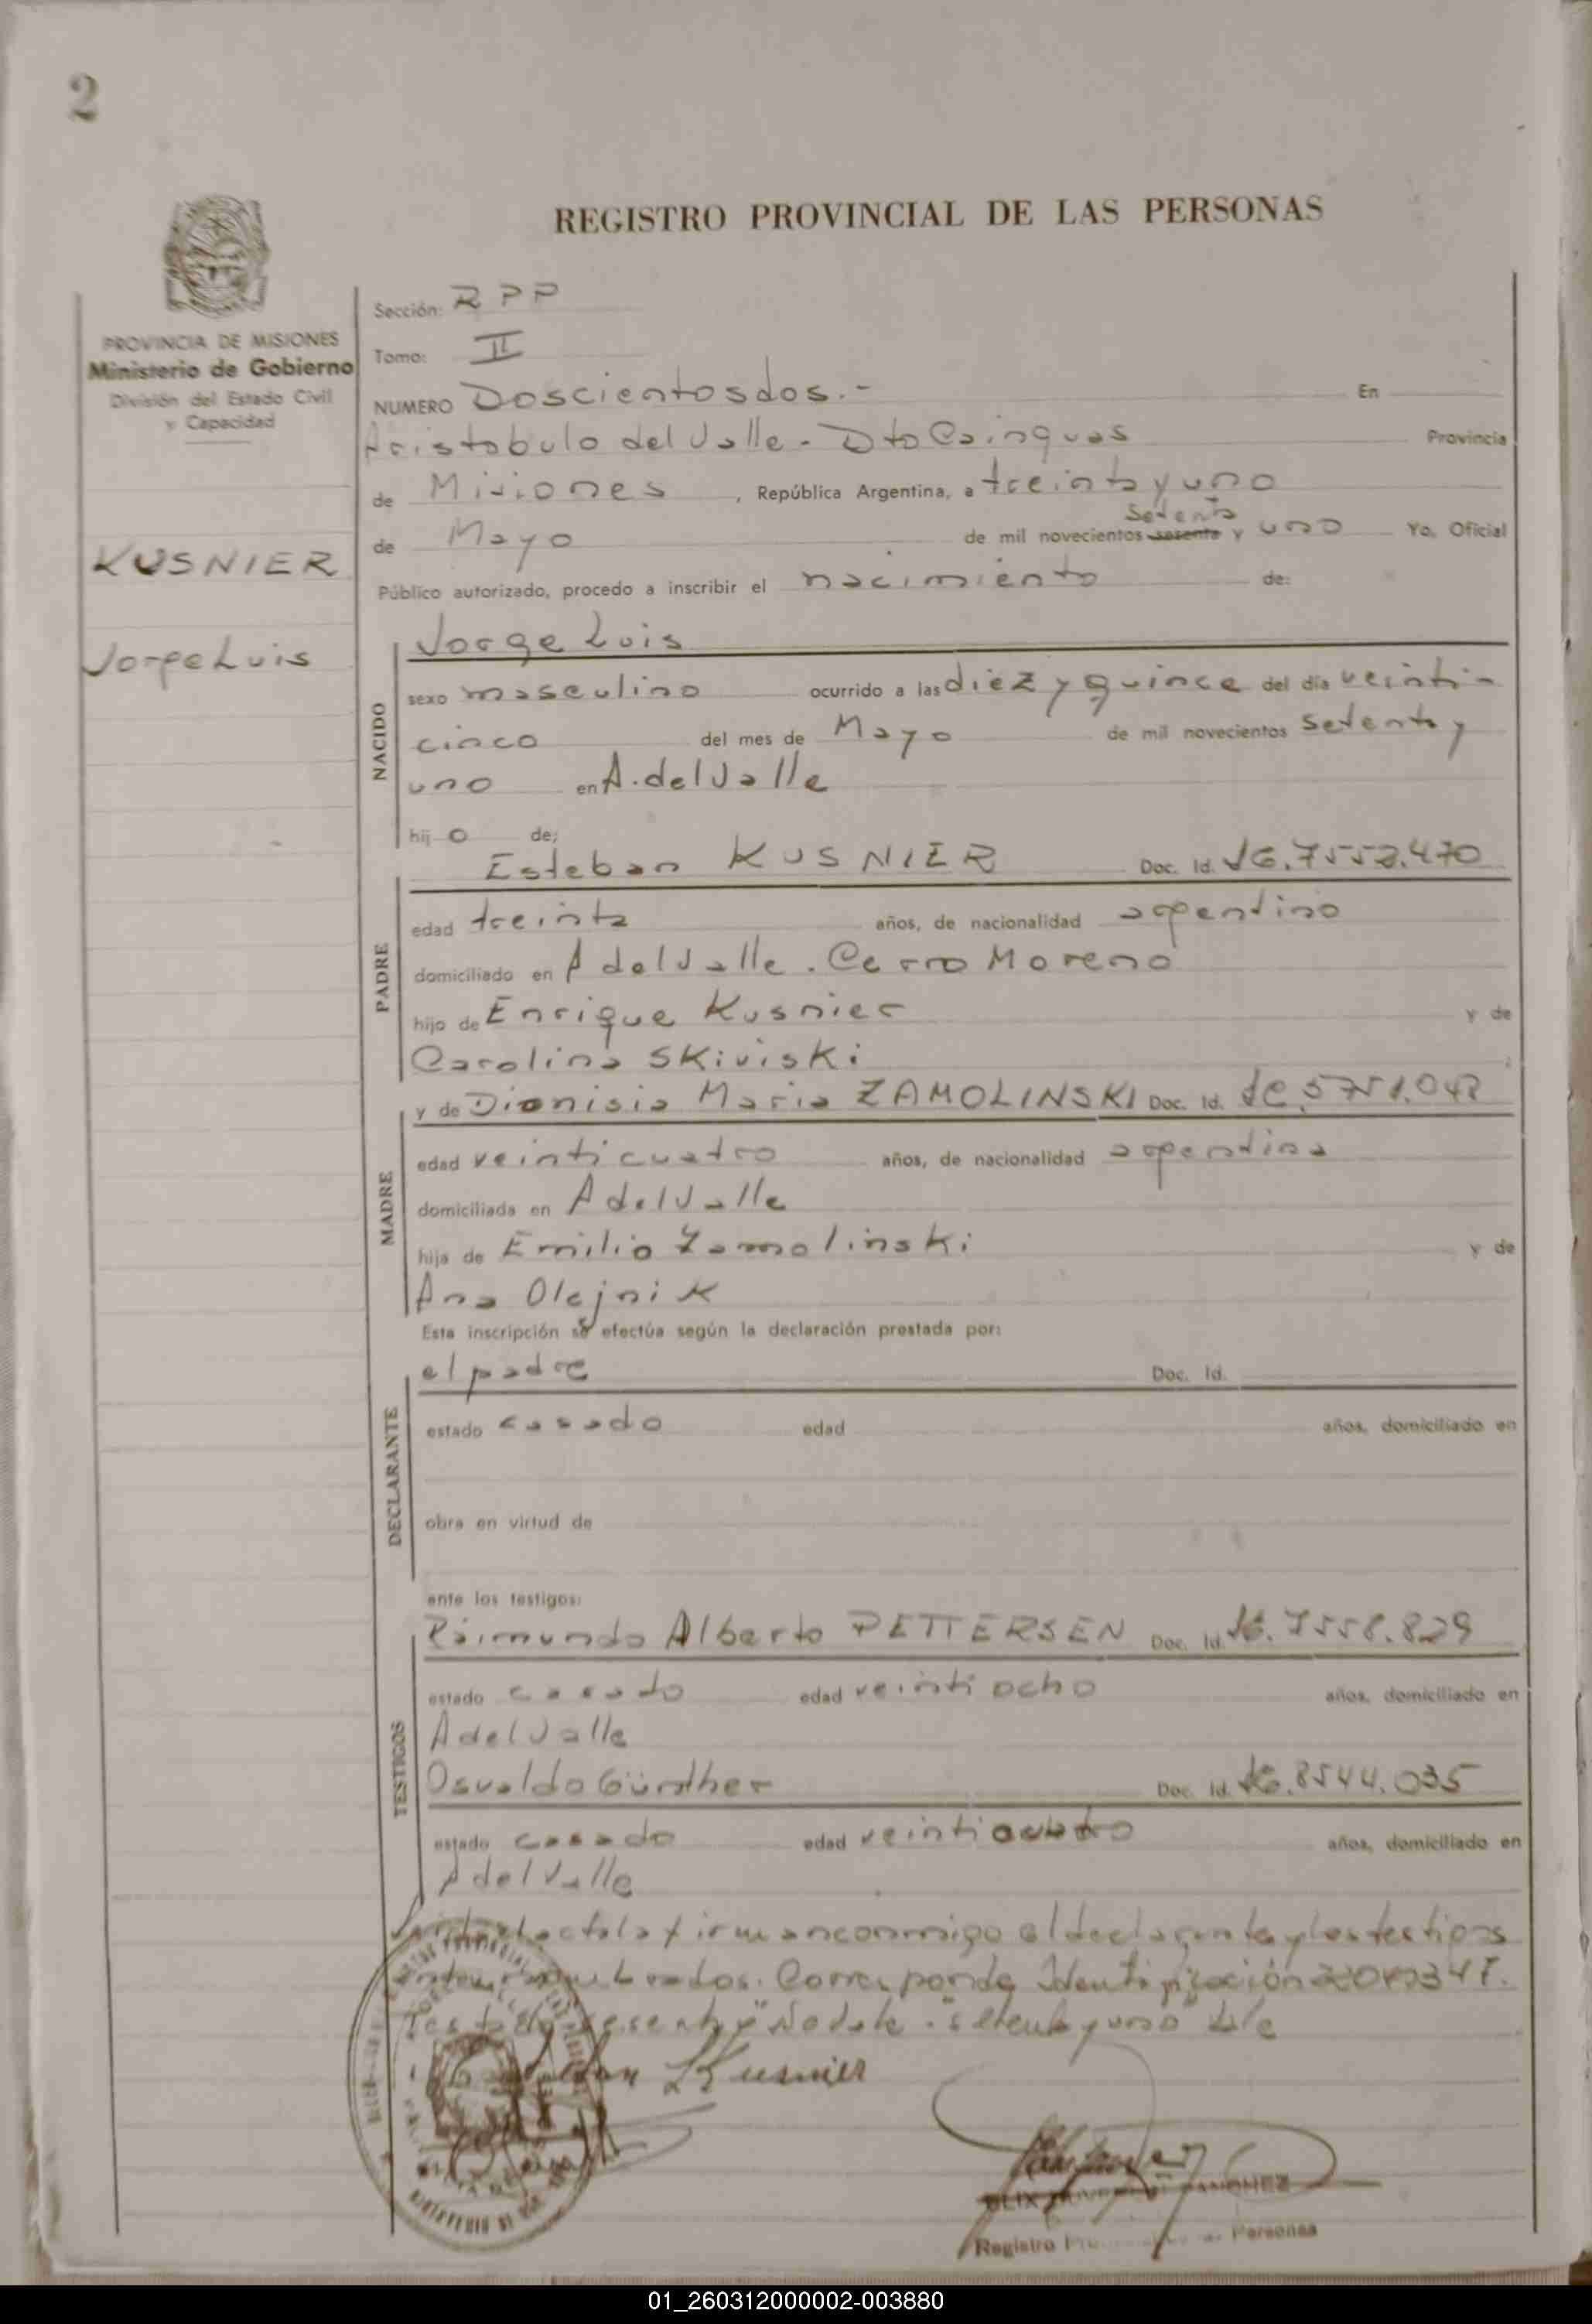 2
REGISTRO PROVINCIAL DE LAS PERSONAS
PROVINCIA DE MISIONES
Ministerio de Gobierno
División del Estado Civil
y Capacidad
KUSNIER
Jorge Luis
Sección: RPP
Tomo: II
NUMERO Doscientos dos.- En
Aristobulo del Valle - Dto Cainguas Provincia
de Misiones, República Argentina, a treinta y uno
setenta
de Mayo de mil novecientos sesenta y uno Yo, Oficial
Público autorizado, procedo a inscribir el nacimiento de:
NACIDO
Jorge Luis
sexo masculino ocurrido a las diez y quince del día veinti-
cinco del mes de Mayo de mil novecientos setenta y
uno en A. del Valle
hij o de:
PADRE
Esteban KUSNIER Doc. Id.
edad treinta años, de nacionalidad argentino
domiciliado en A del Valle. Cerro Moreno
hijo de Enrique Kusnier y de
Carolina Skiviski
MADRE
y de Dionisia Maria ZAMOLINSKI Doc. Id.
edad veinticuatro años, de nacionalidad argentina
domiciliada en A del Valle
hija de Emilio Zamolinski y de
Ana Olejnik
Esta inscripción se efectúa según la declaración prestada por:
DECLARANTE
el padre Doc. Id.
estado casado edad años, domiciliado en
obra en virtud de
ante los testigos:
TESTIGOS
Raimundo Alberto PETTERSEN Doc. Id. 7558.829
estado casado edad veintiocho años, domiciliado en
A del Valle
Osvaldo Günther Doc. Id. 8544.035
estado casado edad veinticuatro años, domiciliado en
A del Valle
acta la firman conmigo el declarante y los testigos
Corresponde Identificación
"setenta y uno" Vale
Kusnier
SANCHEZ
Registro Personas
01_260312000002-003880